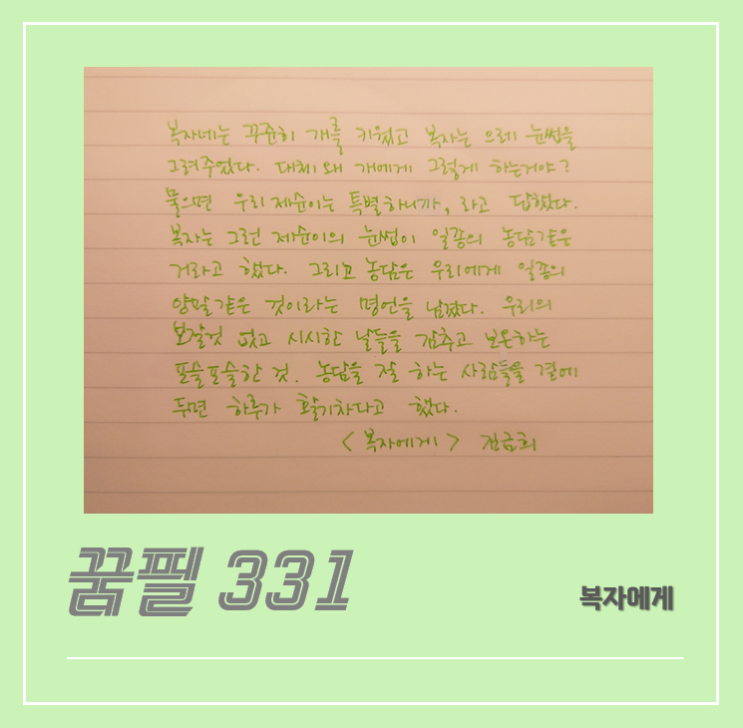 복자네는 꾸준히 개를 키웠고 복자는 으레 눈썹을
그려주었다. 대체 왜 개에게 그렇게 하는거야?
물으면 우리 제순이는 특별하니까, 라고 답했다.
복자는 그런 제순이의 눈썹이 일종의 농담같은
거라고 했다. 그리고 농담은 우리에게 일종의
양말같은 것이라는 명언을 남겼다. 우리의
보잘것 없고 시시한 날들을 감추고 보온하는
포슬포슬한 것. 농담을 잘 하는 사람들을 곁에
두면 하루가 활기차다고 했다.
<복자에게> 김금희
꿈필 331
복자에게